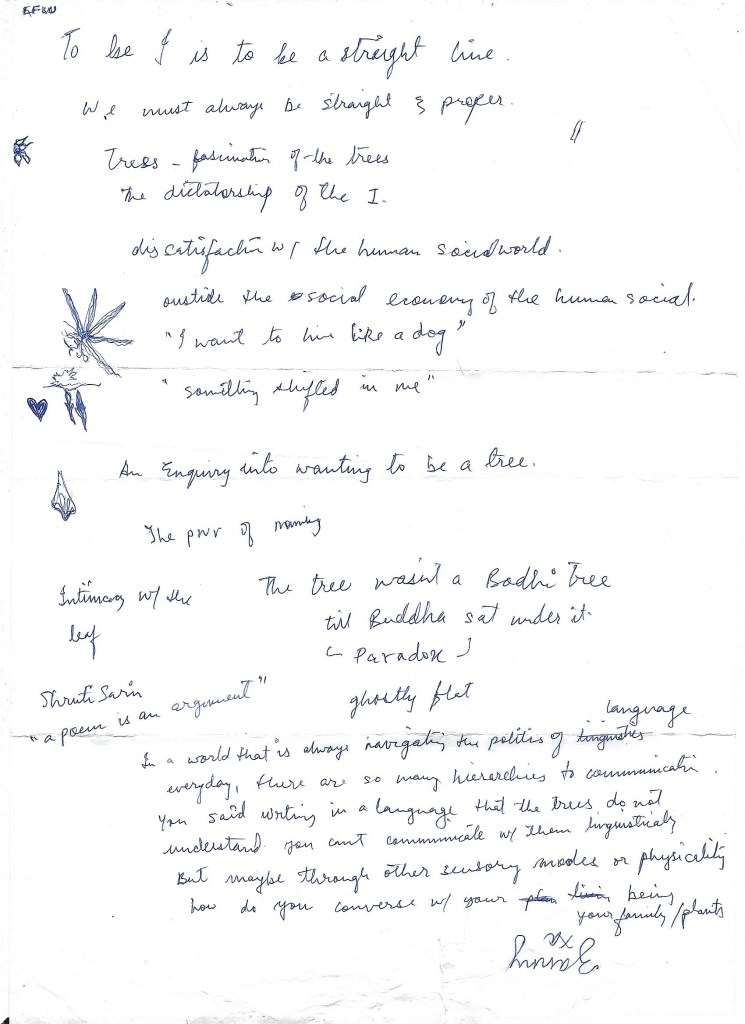 EFLU
To be I is to be a straight line.
We must always be straight & proper.
"
Trees - fascination of the trees
The dictatorship of the I.
dissatisfactn w/ the human social world.
oustide the social economy of the human social.
"I want to live like a dog"
"something shifted in me"
An Enquiry into wanting to be a tree.
The pwr of naming
Intimacy w/ the
leaf
The tree wasn't a Bodhi Tree
till Buddha sat under it.
( Paradox )
Shruti Sarin
"a poem is an argument"
ghostly flat
In a world that is always navigating the politics of linguistics language
everyday, there are so many hierarchies to communicatn.
You said writing in a language that the trees do not
understand. you can't communicate w/ them linguistically
But maybe through other sensory modes or physicality
how do you converse w/ your plan livin being
your family/plants